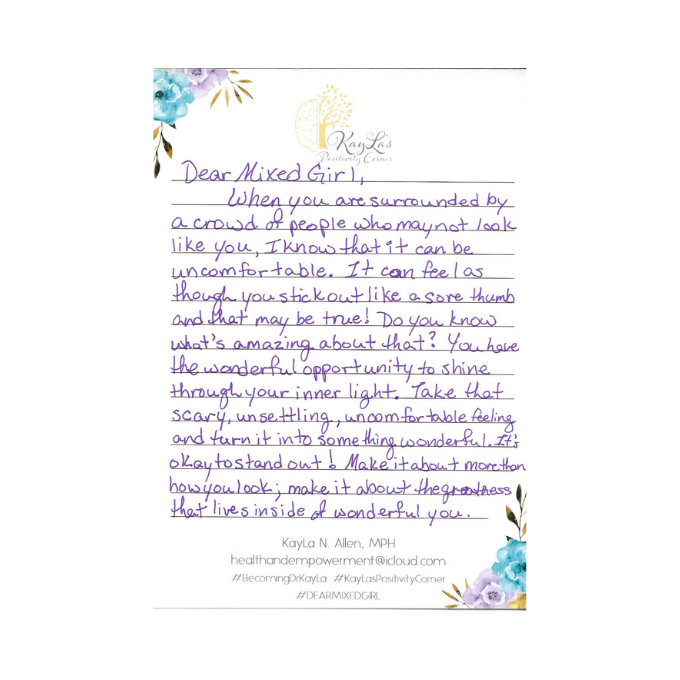 KayLa's
Positivity Corner
Dear Mixed Girl,
When you are surrounded by
a crowd of people who may not look
like you, I know that it can be
uncomfortable. It can feel as
though you stick out like a sore thumb
and that may be true! Do you know
what's amazing about that? You have
the wonderful opportunity to shine
through your inner light. Take that
scary, unsettling, uncomfortable feeling
and turn it into something wonderful. It's
okay to stand out! Make it about more than
how you look; make it about the greatness
that lives inside of wonderful you.
KayLa N. Allen, MPH
healthandempowerment@icloud.com
#BecomingDrKayLa #KayLasPositivityCorner
#DEARMIXEDGIRL